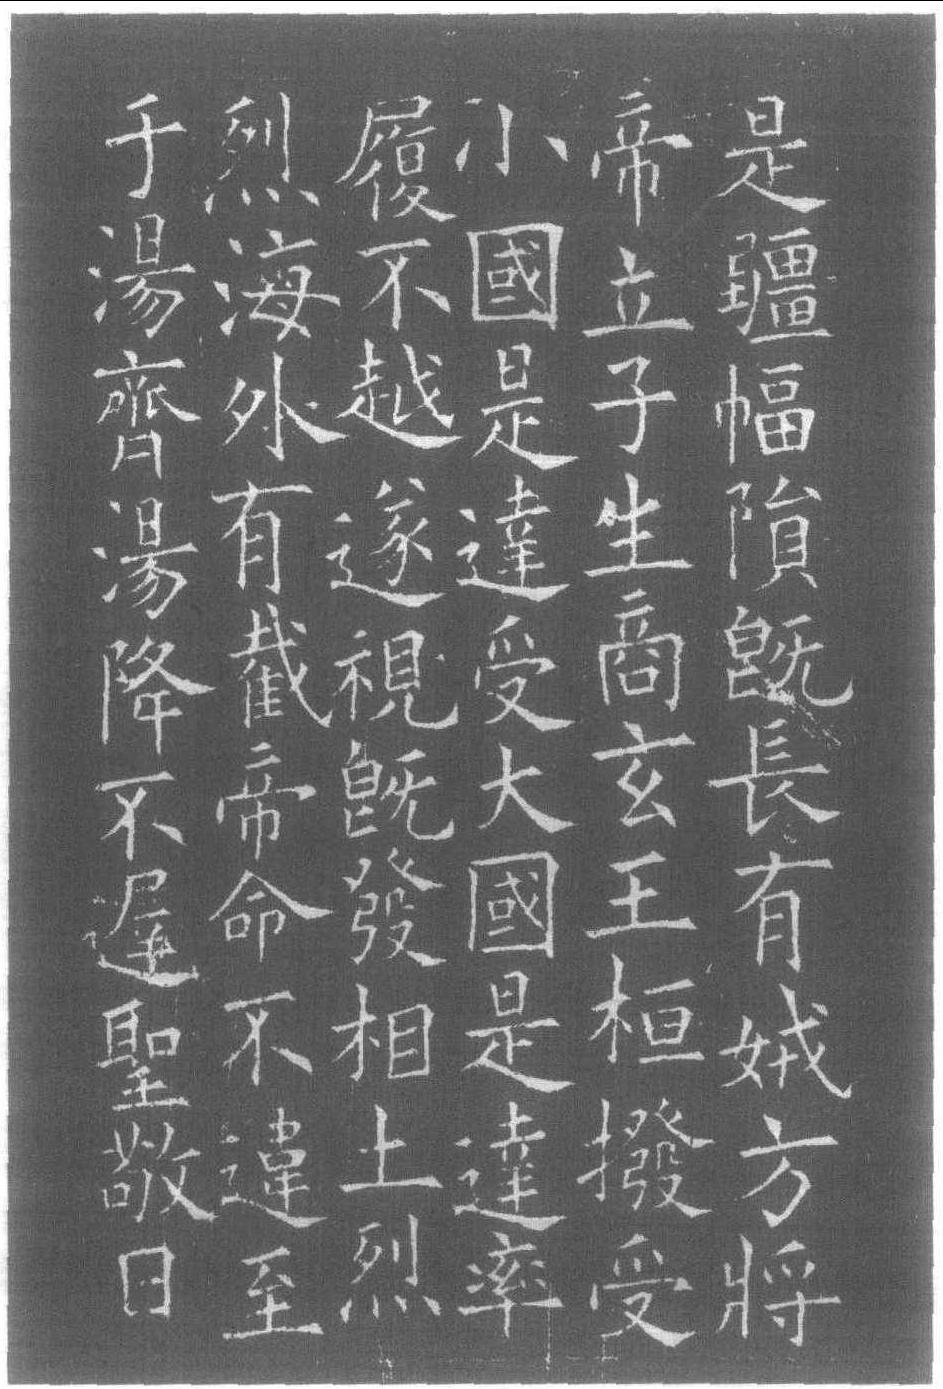 是疆幅隕既長有娀方將
帝立子生商玄王桓撥受
小國是達受大國是達率
履不越遂視既發相土烈
烈海外有截帝命不違至
于湯齊湯降不遲聖敬日